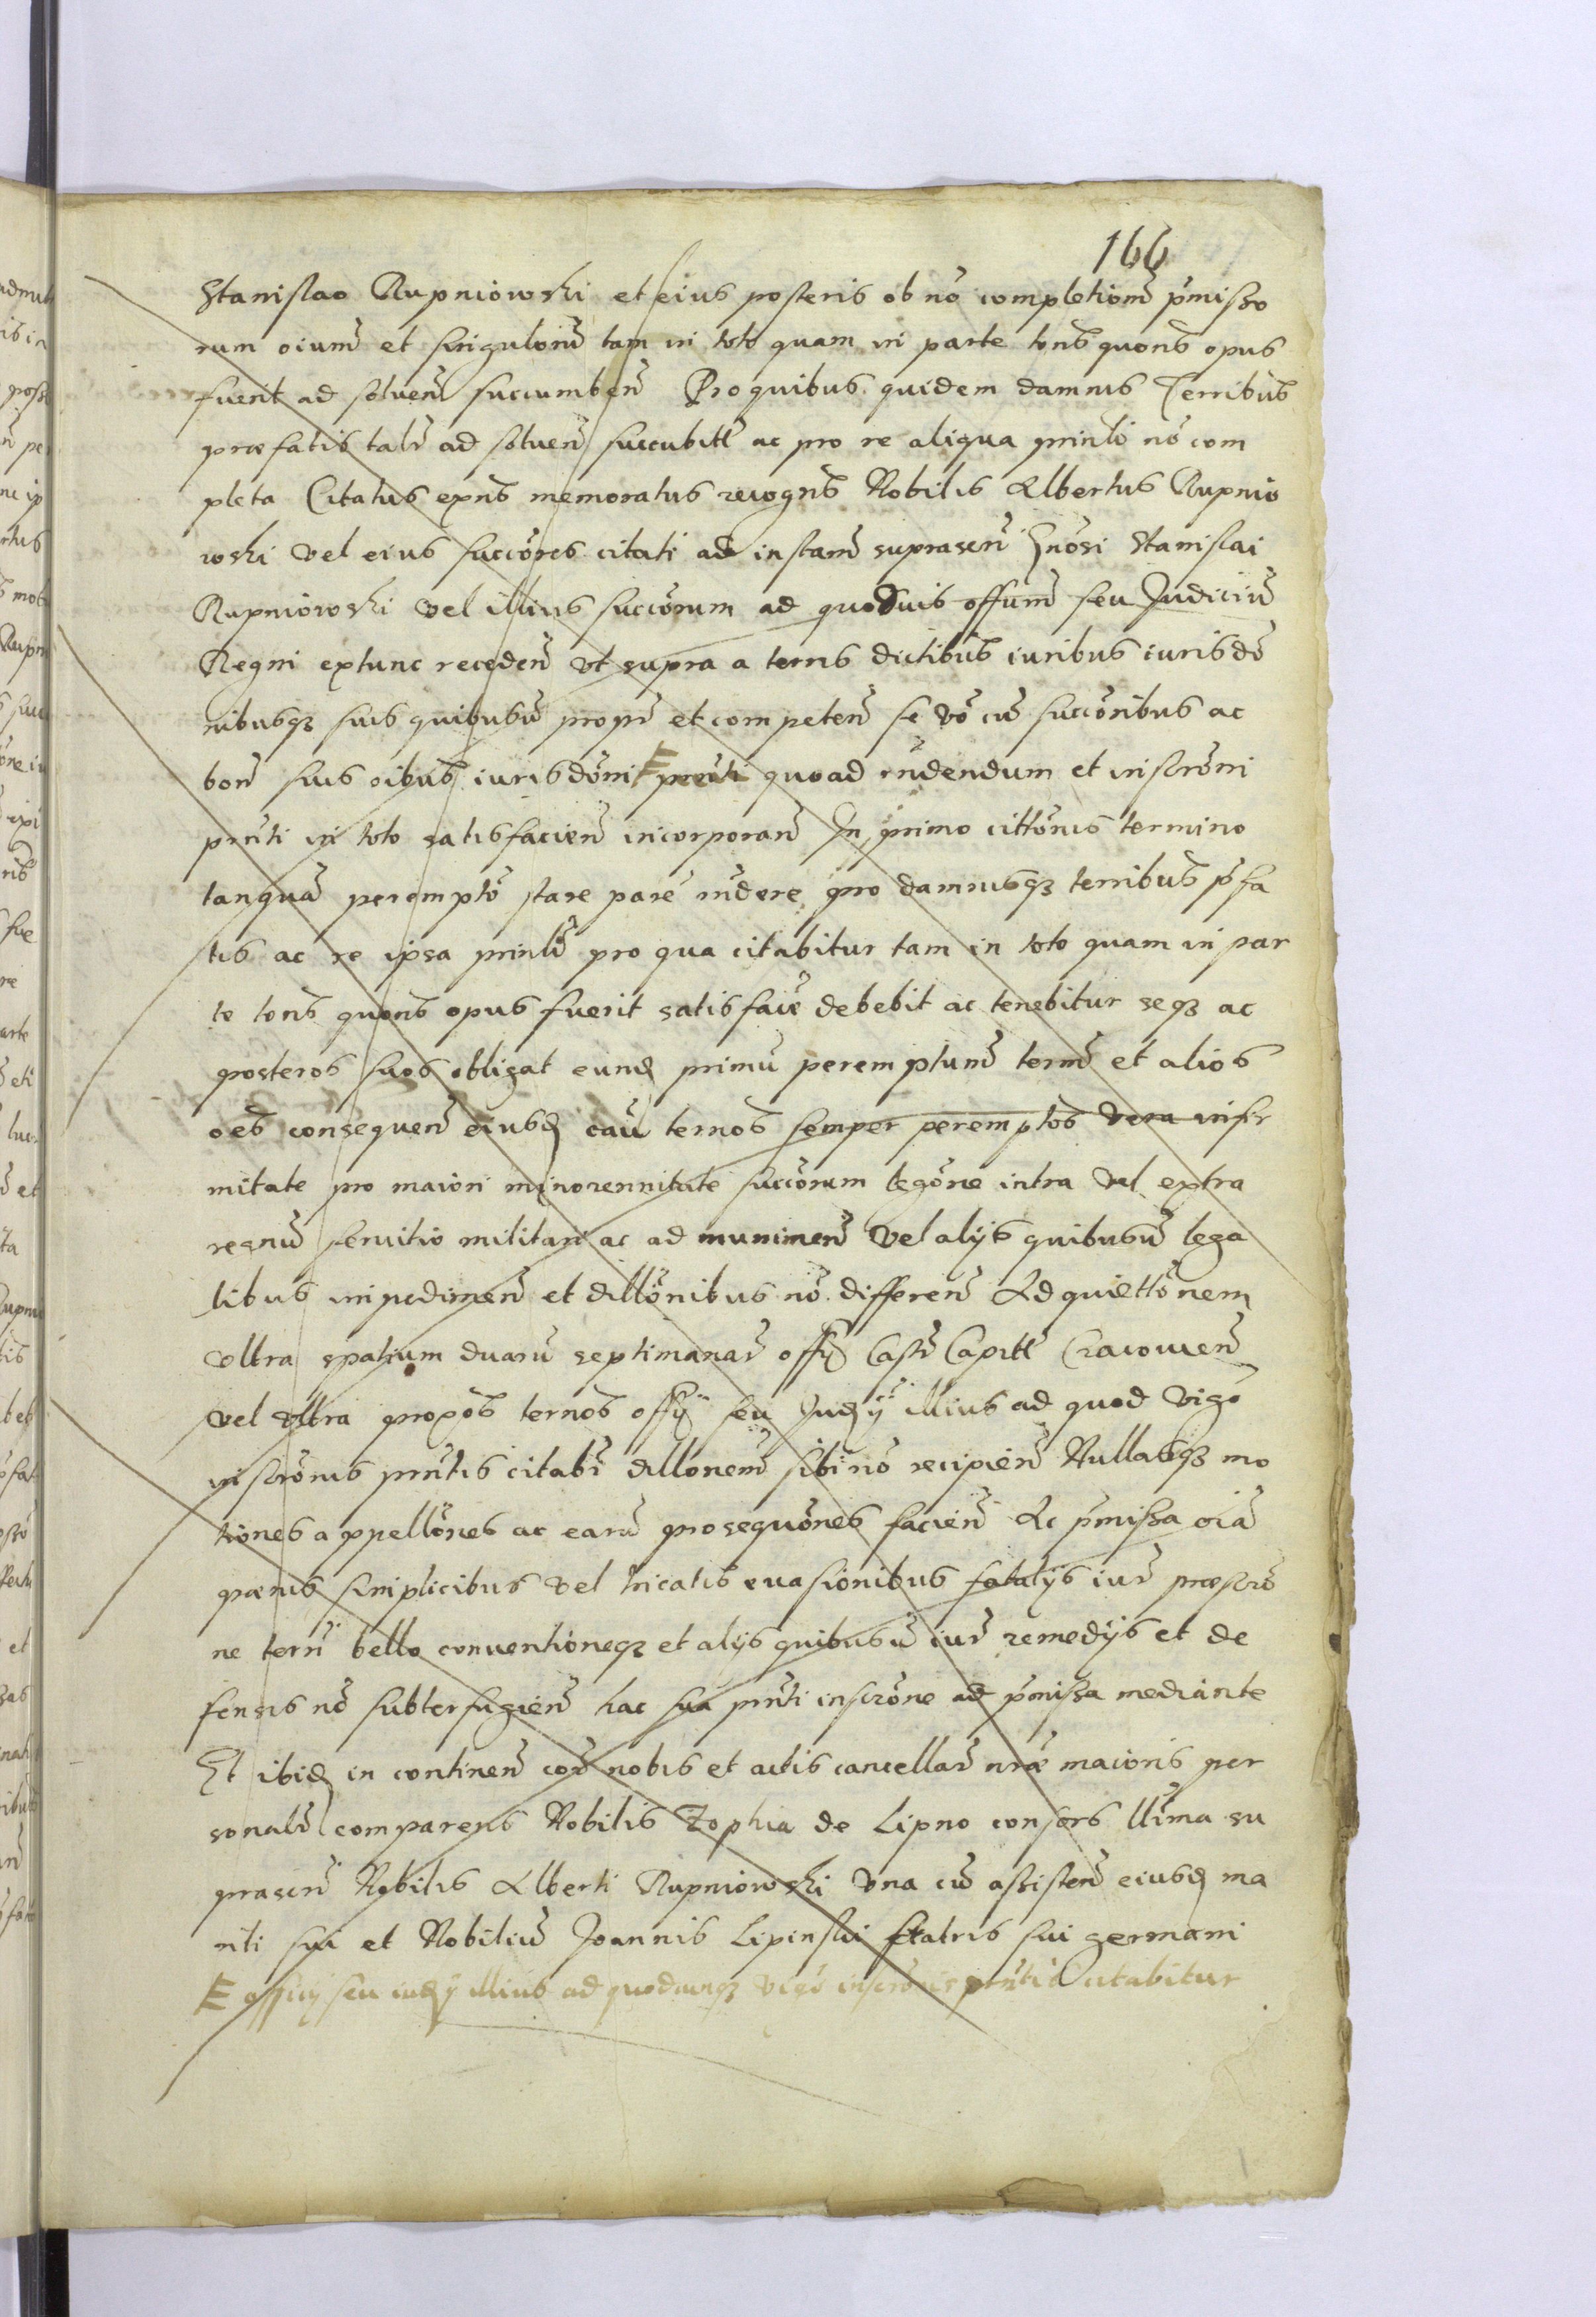 166
Stanislao Rupniowski et eius posteris ob nō completionē p̄misso
rum oium̄ et singulorū tam in toto quam in parte tons̄ quons̄ opus
fuerit ad soluen̄ succumben̄ Pro quibus quidem damnis Terribus̄
præfatis talr̄ ad soluen̄ succubitis̄ ac pro re aliqua prinlī nō com
pleta Citatus expn̄s memoratus recogn̄s Nobilis Albertus Rupnio
wski vel eius succōres citati ad instan̄ suprascrī Gnōsi Stanislai
Rupniowski vel illius succōrum ad quoduis offum̄ seu Judiciū
Regni extunc receden̄ vt supra a terris dictibus̄ iuribus iurisdō
nibusq3 suis quibusū propr̄ et competen̄ se vō cū succōribus ac
bon̄ suis oibus̄ iurisdōni prn̄ti quoad rn̄dendum et inscrōni
prn̄ti in toto satisfacien̄ incorporan̄ In primo cittōnis termino
tanquā peremptō stare parē rn̄dere pro damnisq3 terribus̄ p̄fa
tis ac re ipsa prinlī pro qua citabitur tam in toto quam in par
te tons̄ quons̄ opus fuerit satisfacē debebit ac tenebitur seq3 ac
posteros suos obligat eund primū peremptum̄ term̄ et alios
oēs consequen̄ eiusd caū ternos̄ semper peremptōs vera infir
mitate pro maiori minorennitate succōrum legōne intra vel extra
regnū seruitio militari ac ad munimen̄ vel alijs quibusū lega
libus impedimen̄ et dillōnibus nō differen̄ Ad quiettōnem
vltra spatium duarū septimanar̄ offij Castr̄ Capitl̄ Cracouien̄
vel vltra propōs ternos̄ offij seu Judij illius ad quod vigō
inscrōnis prn̄tis citabr̄ dillonem̄ sibi nō recipien̄ Nullasq3 mo
tiones appellōnes ac earū prosequōnes facien̄ Ac p̄missa oiā
pœnis simplicibus vel tricatis euasionibus fatalijs iur̄ præscrō
ne terrī bello conuentioneq3 et alijs quibusū iur̄ remedijs et de
fensis nō subterfugien̄ hac sua prn̄ti inscrōne ad p̄missa mediante
Et ibid in continen̄ cor̄ nobis et actis cancellar̄ nr̄æ maioris per
sonalr̄ comparens Nobilis Zophia de Lipno consors llīma su
prascrī Nobilis Alberti Rupniowski vna cū assisten̄ eiusd ma
riti sui et Nobiliū Joannis Lipinski fratris sui germani
offij seu iudij illius ad quodcunq3 vigō inscrōnis prn̄tis citabitur